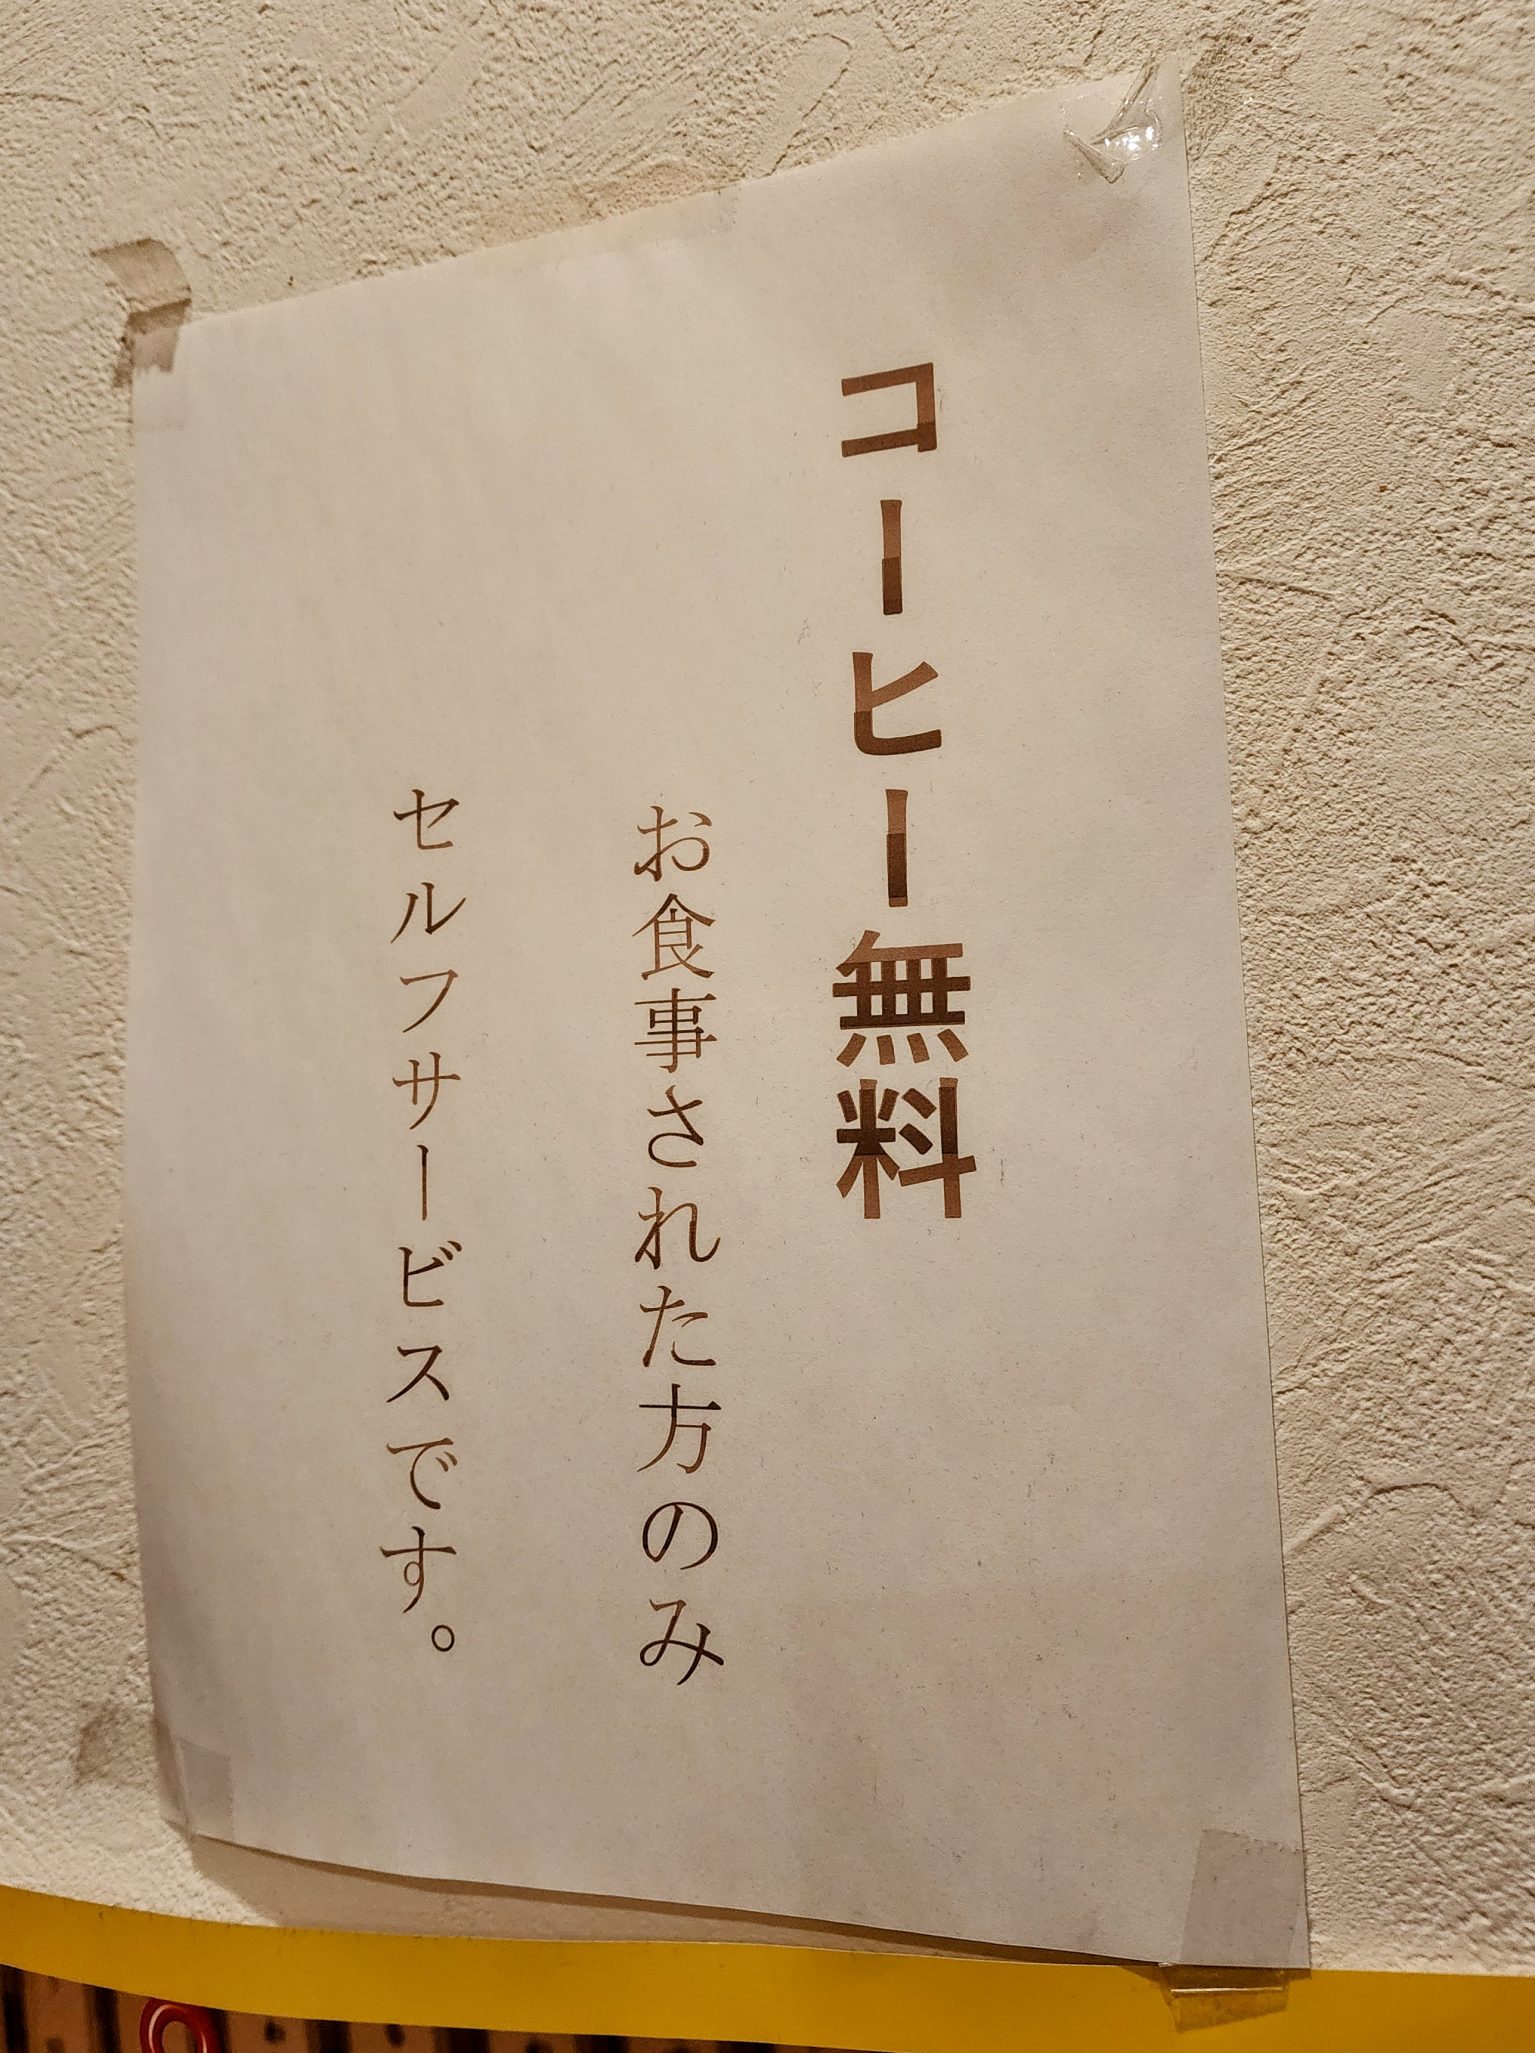 コーヒー無料
お食事された方のみ
セルフサービスです。